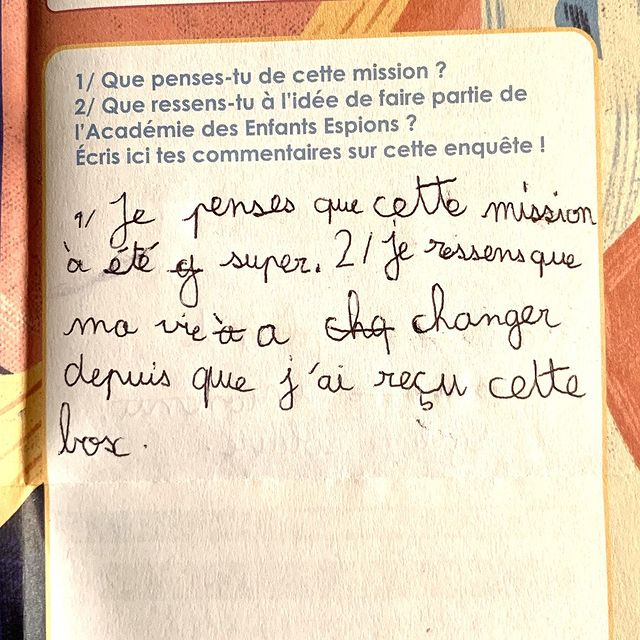 1/ Que penses-tu de cette mission ?
2/ Que ressens-tu à l'idée de faire partie de
l'Académie des Enfants Espions ?
Écris ici tes commentaires sur cette enquête !
1/ Je penses que cette mission
à été super. 2/ je ressens que
ma vie à a chq changer
depuis que j'ai reçu cette
box.